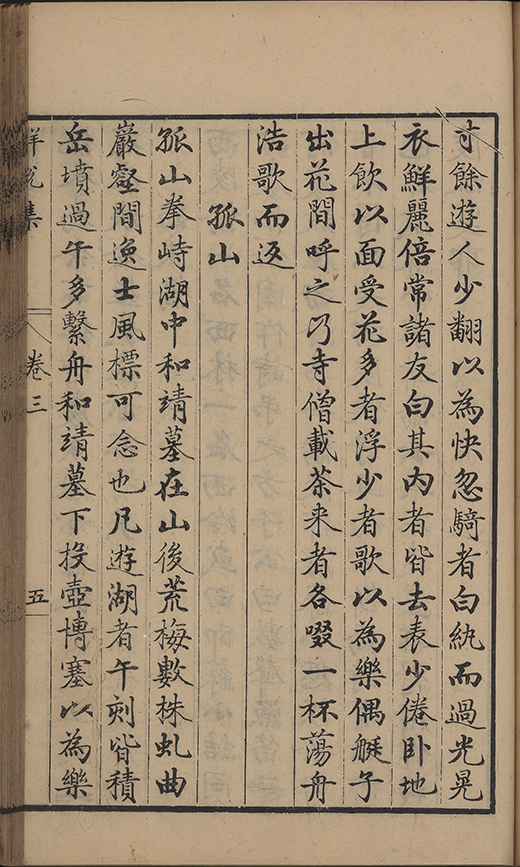 寸餘遊人少翻以為快忽騎者白紈而過光晃
衣鮮麗倍常諸友白其內者皆去表少倦卧地
上飲以面受花多者浮少者歌以為樂偶艇子
出花間呼之乃寺僧載茶来者各啜一杯蕩舟
浩歌而返
孤山
孤山拳峙湖中和靖墓在山後荒梅數株虬曲
巖壑間逸士風標可念也凡遊湖者午刻皆積
岳墳過午多繫舟和靖墓下投壺博塞以為樂
卷三
五